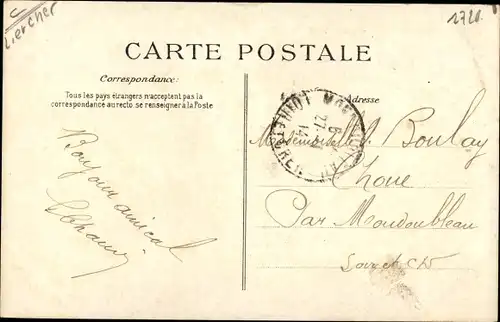 C
Liercher
1720.
CARTE POSTALE
Correspondance:
Tous les pays étrangers n'acceptent pas la
correspondance au recto, se renseigner à la Poste
Adresse
MONDOUBLEAU
6
27
14
LOIR-ET-CHER
Bonjour amical
Mademoiselle S. Boulay
Choue
Par Mondoubleau
Loir et Ch